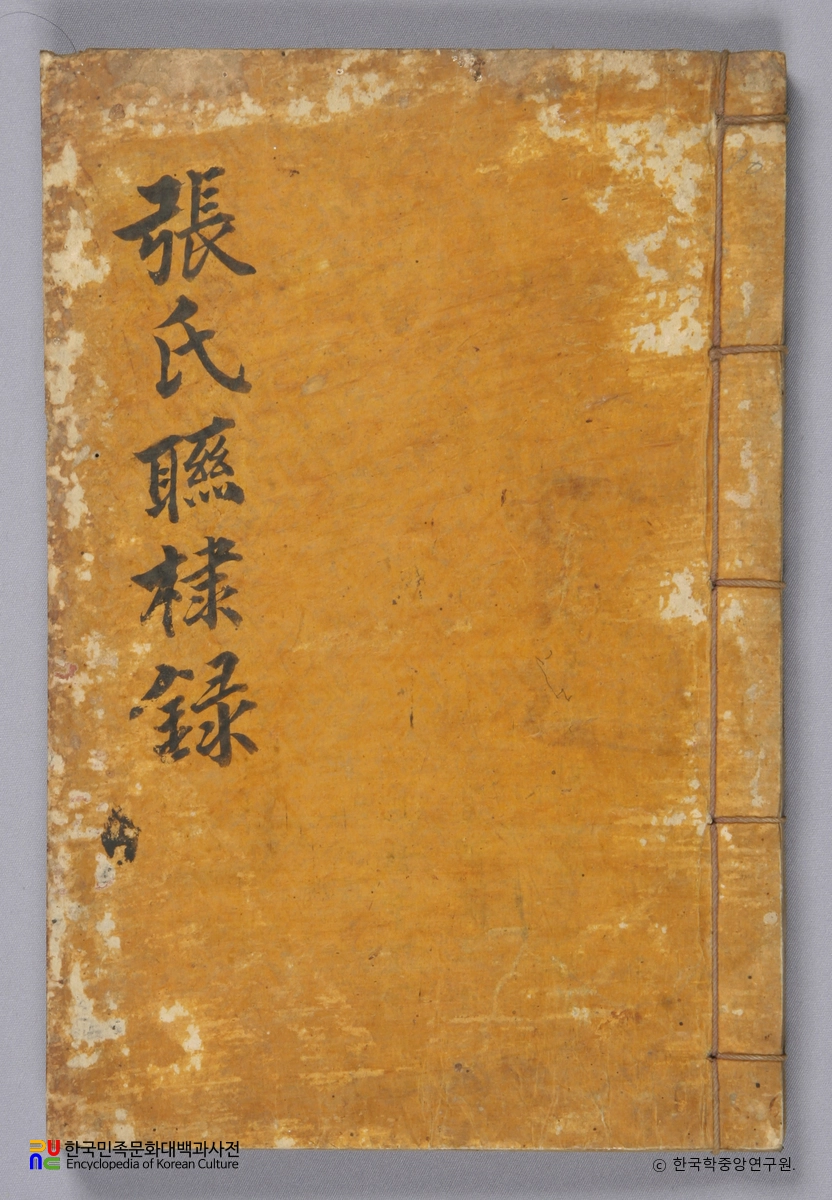 張氏聮棣録
한국민족문화대백과사전
Encyclopedia of Korean Culture
ⓒ 한국학중앙연구원.